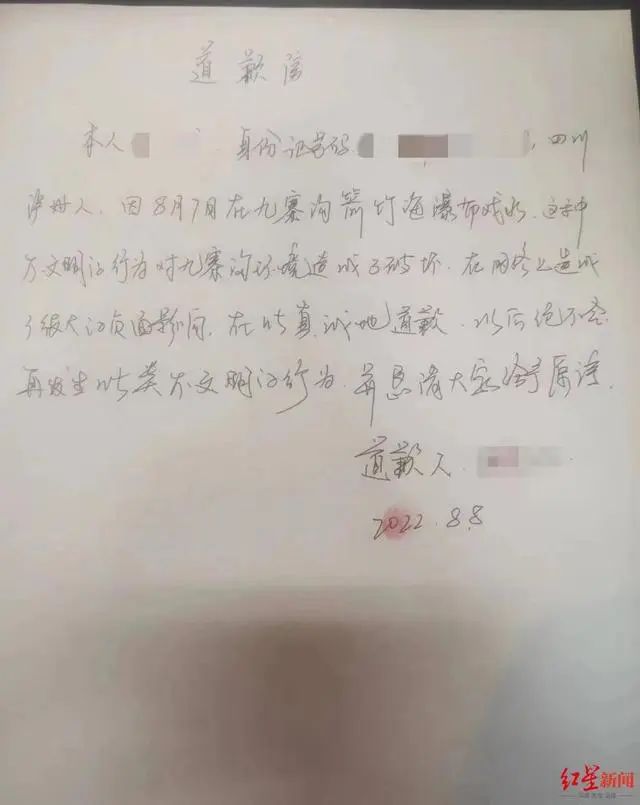 道歉信
本人 身份证号码 , 四川
泸州人, 因8月7日在九寨沟箭竹海瀑布戏水, 这种
不文明的行为对九寨沟环境造成了破坏. 在网络上造成
了很大的负面影响, 在此真诚地道歉, 以后绝不会
再发生此类不文明的行为, 并恳请大家给予原谅.
道歉人.
2022.8.8
红星新闻